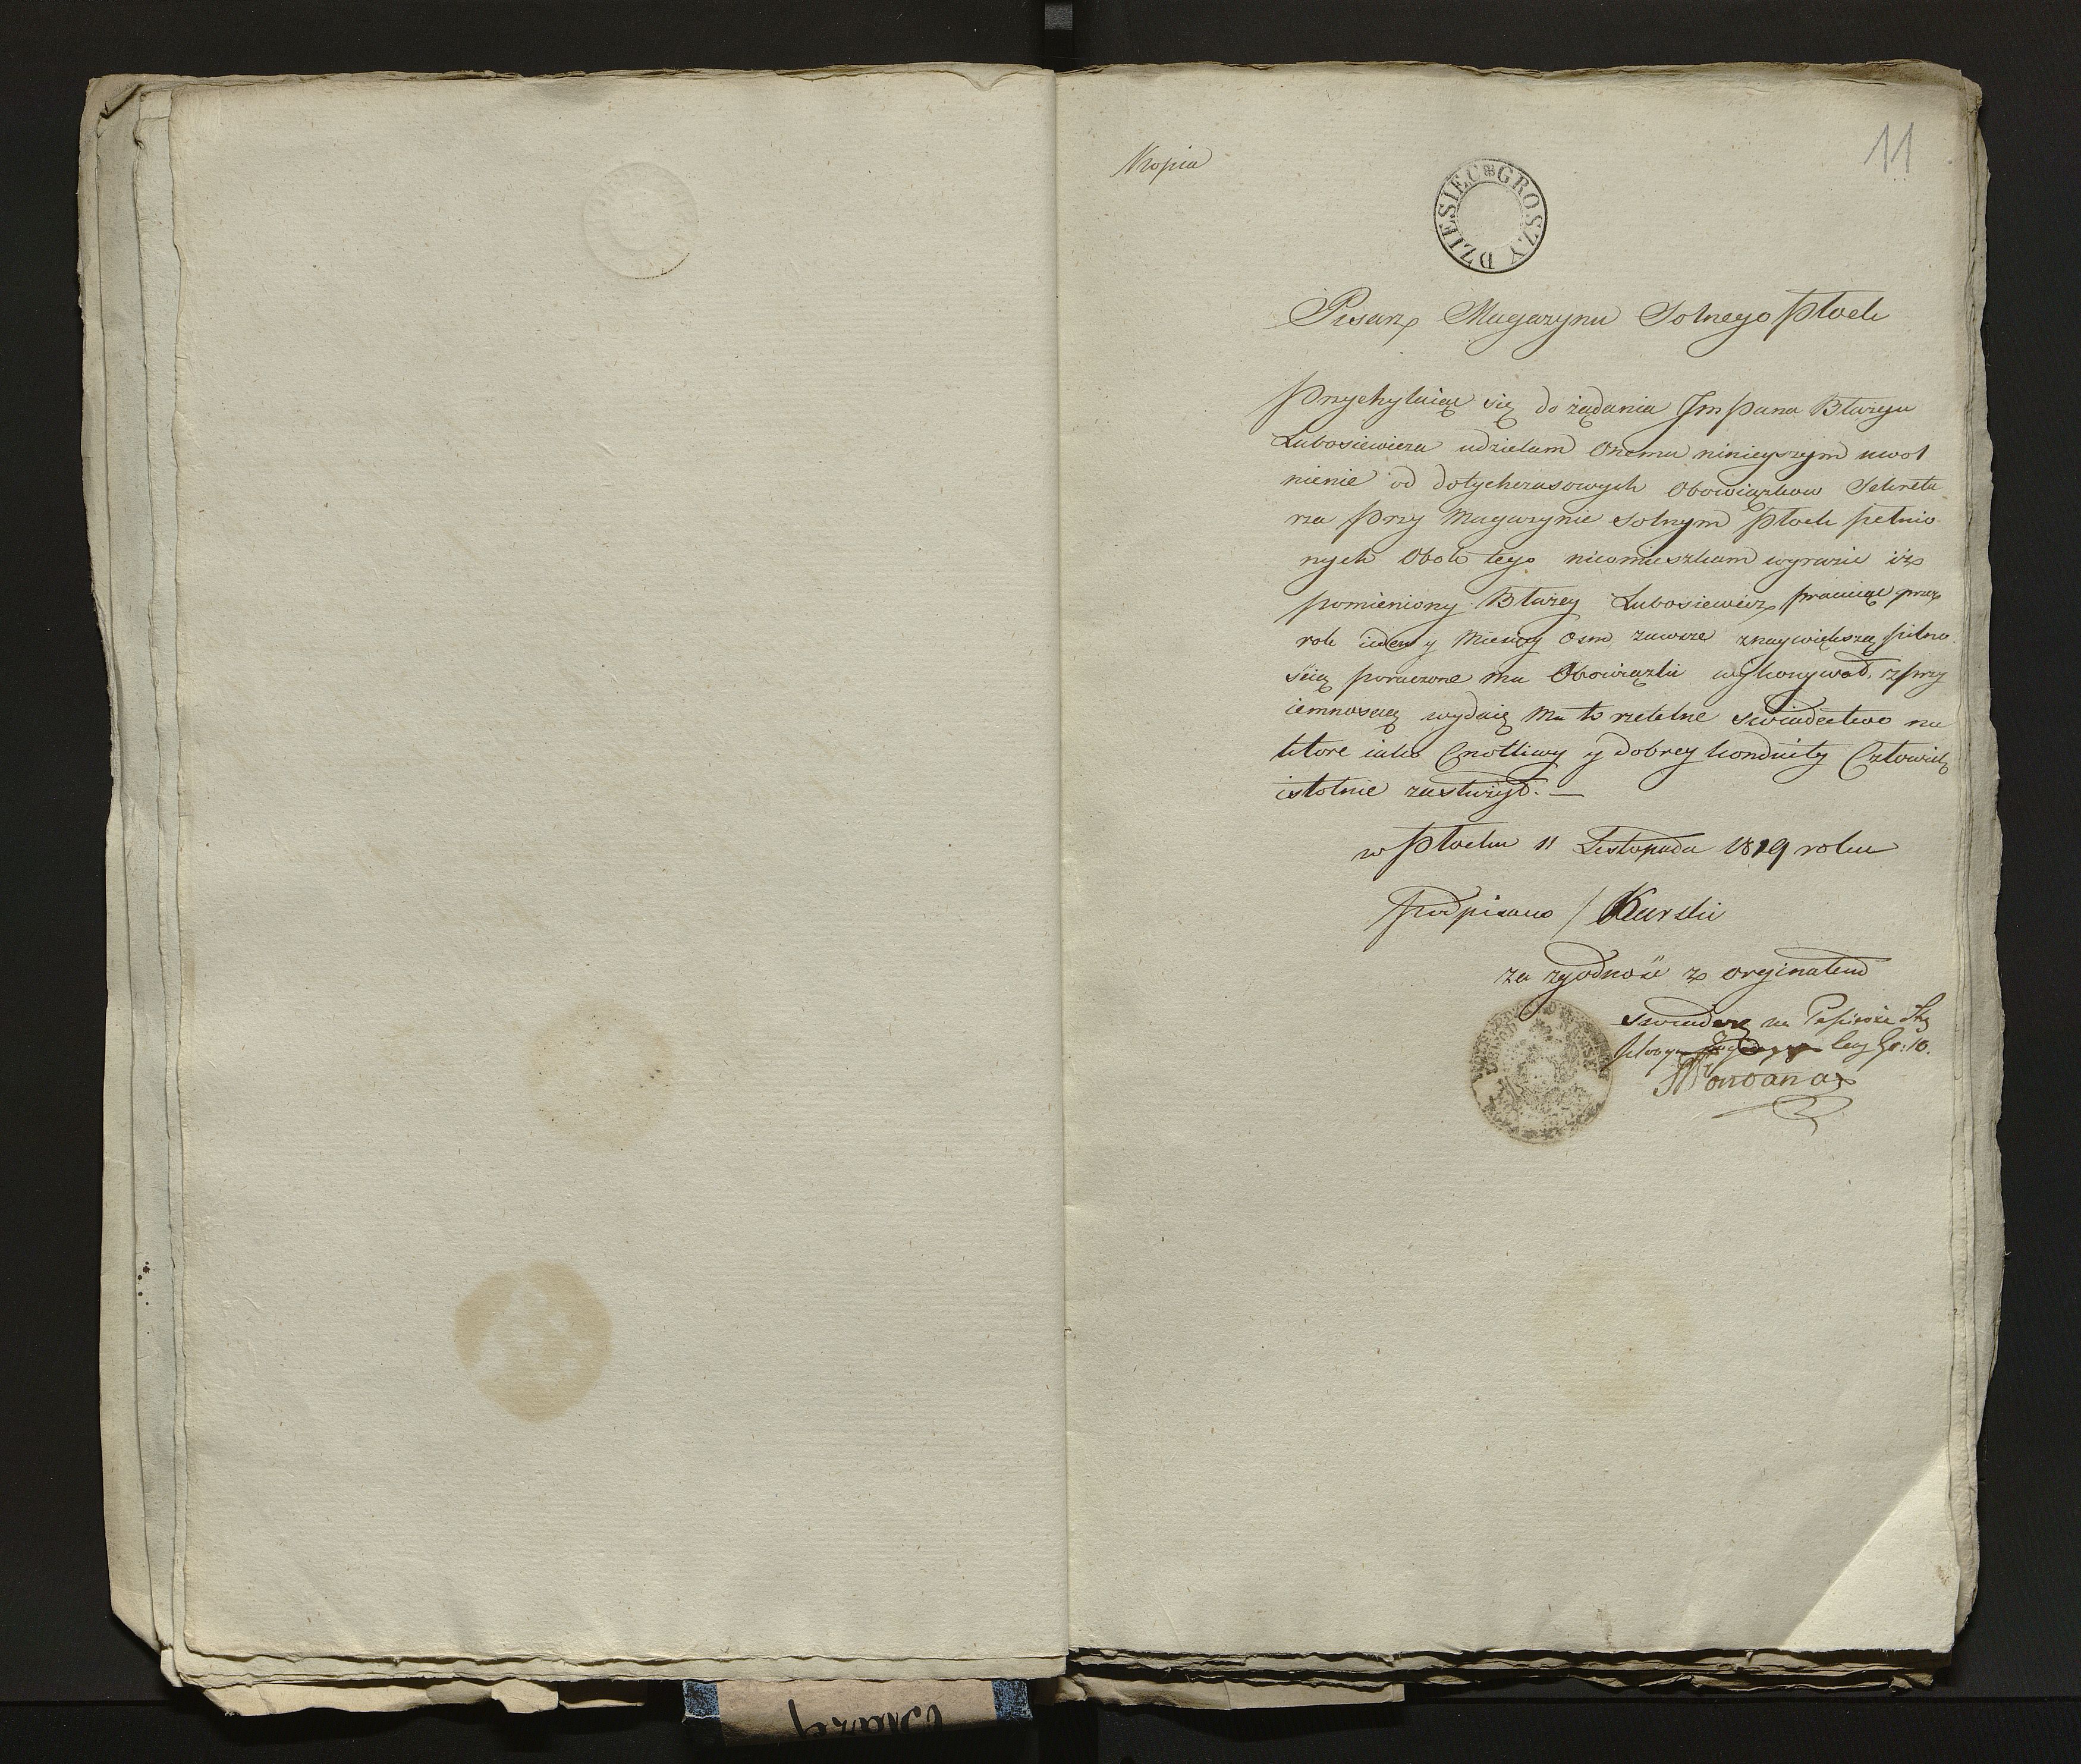 11
Kopia
DZIESIĘC GROSZY
Pisarz Magazynu Solnego Płock
Przychylaiąc się do żądania Jm Pana Błażeja
Lubosiewicza udzielam Onemu ninieyszym uwol
nienie od dotychczasowych Obowiązkow Sekreta
rza przy Magazynie Solnym Płock pełnio
nych Obok tego nieomieszkam wyrazić iż
pomieniony Błażey Lubosiewicz pracuiąc przez
rok ieden y Miesięcy Osm zawsze znaywiększą pilno
ścią poruczone mu Obowiązki wykonywał, z przy
iemnoscią wydaię Mu to rzetelne swiadectwo na
ktore iako Cnotliwy y dobrey konduity Człowiek
istotnie zasłużył. —
w Płocku 11 Listopada 1819 roku
podpisano / Kurski
za zgodność z orginałem
swiadczę na Papierze
Ceny gr: 10.
Błażej